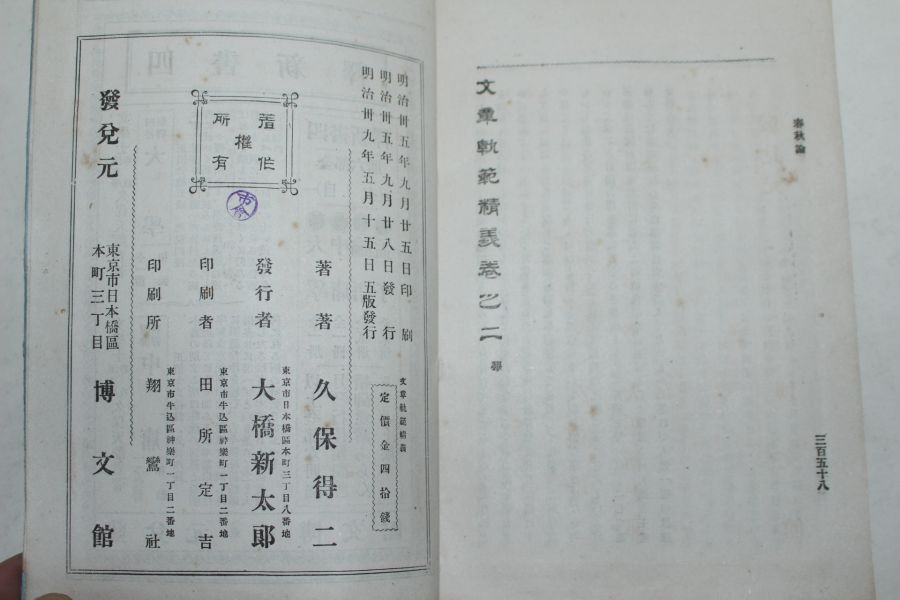 春秋論
三百五十八
文章軌範精義卷之二 畢
明治卅五年九月廿五日印刷
明治卅五年九月廿八日發行
明治卅九年五月十五日五版發行
文章軌範精義
定價金四拾錢
著作
權
所有
著者 久保得二
東京市日本橋區本町三丁目八番地
發行者 大橋新太郎
東京市牛込區神樂町一丁目二番地
印刷者 田所定吉
東京市牛込區神樂町一丁目二番地
印刷所 翔鸞社
發兌元
東京市日本橋區
本町三丁目
博文館